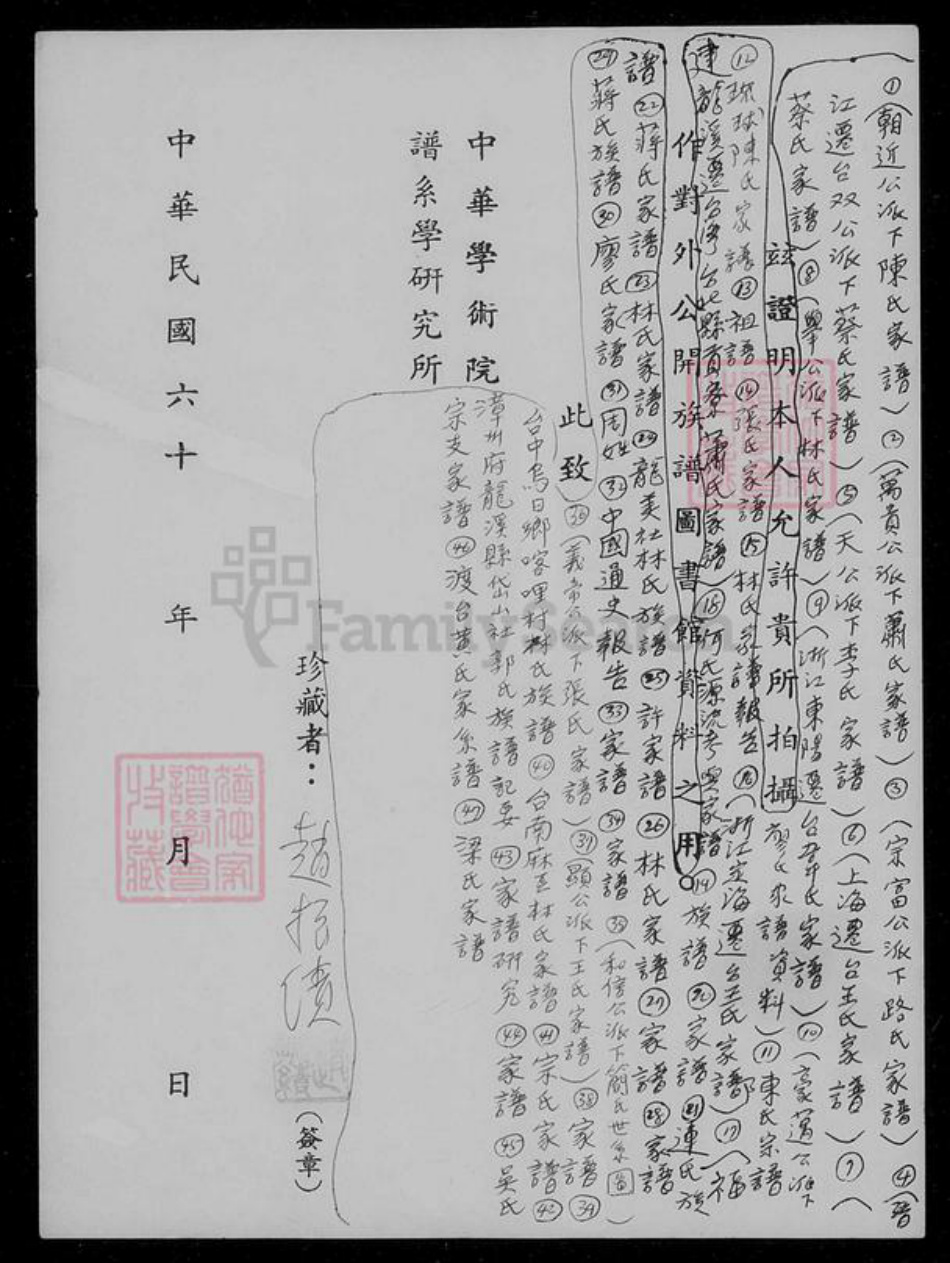 ①(朝近公派下陳氏家譜)②(萬貴公派下蕭氏家譜)③(宗富公派下路氏家譜)④(晋
江遷台双公派下蔡氏家譜)⑤(天公派下李氏家譜)⑥(上海遷台王氏家譜)⑦(
蔡氏家譜)⑧(舉公派下林氏家譜)⑨(浙江東陽遷台 氏家譜)⑩(豪萬公派下
茲證明本人允許貴所拍攝
廖氏家譜資料)⑪東氏宗譜
⑫琉球陳氏家譜⑬祖譜⑭張氏家譜⑮林氏家譜報告⑯(浙江定海遷台王氏家譜)⑰(福
作對外公開族譜圖書館資料之用。
建龍溪遷台灣台北縣貢寮蕭氏家譜)⑱何氏源流考與家譜⑲族譜⑳家譜㉑連氏族
譜㉒蔣氏家譜㉓林氏家譜㉔龍美社林氏族譜㉕許家譜㉖林氏家譜㉗家譜㉘家譜
㉙蔣氏族譜㉚廖氏家譜㉛周姓㉜中國通史報告㉝家譜㉞家譜㉟(和信公派下簡氏世系 )
此致
㊱(義帝公派下張氏家譜)㊲(顯公派下王氏家譜)㊳家譜㊴
台中烏日鄉喀哩村林氏族譜㊵台南麻豆林氏家譜㊶宗氏家譜㊷
漳州府龍溪縣岱山社郭氏族譜記要㊸家譜研究㊹家譜㊺吳氏
宗支家譜㊻渡台黃氏家系譜㊼梁氏家譜
中華學術院
譜系學研究所
珍藏者：趙振績
(簽章)
中華民國六十年月日
FamilySearch